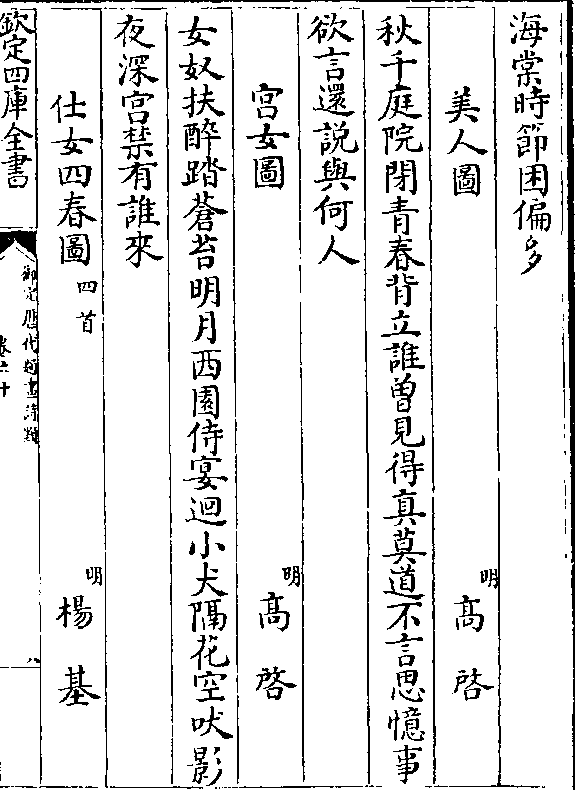 海棠時節困偏多
美人圖 明 高啓
秋千庭院閉青春背立誰曽見得真莫道不言思憶事
欲言還說與何人
宫女圖 明 高啓
女奴扶醉踏蒼苔明月西園侍宴迴小犬隔花空吠影
夜深宫禁有誰來
仕女四春圖 四首 明 楊基
欽定四庫全書
御定歴代題畫詩類
八